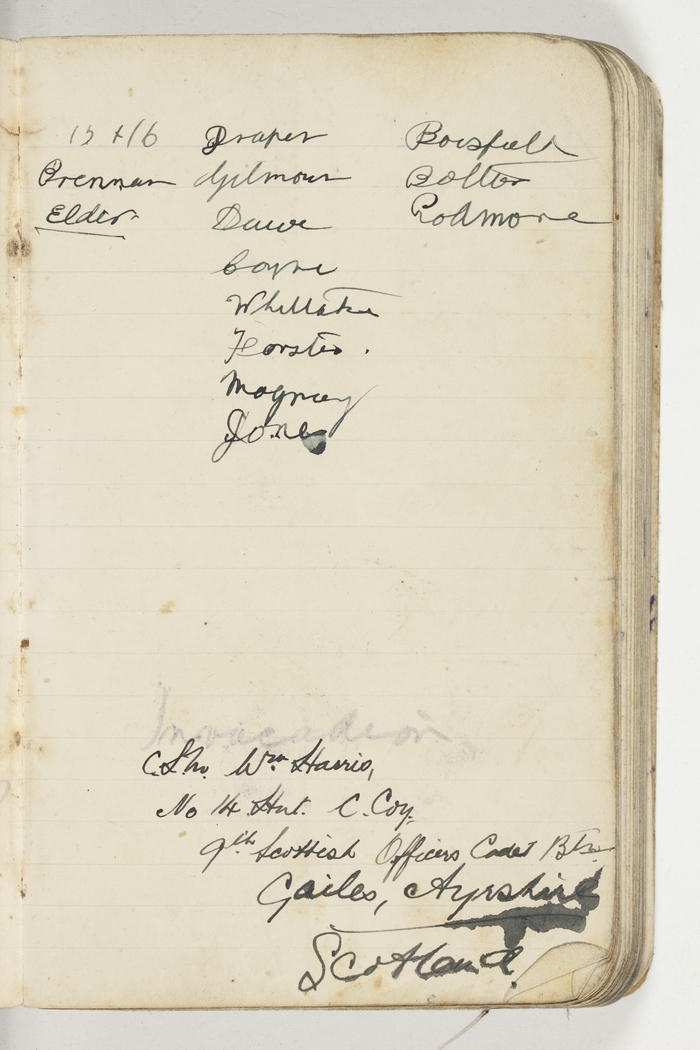 15 +16 Draper Boesfield
Brennan Gilmour Bolton
Elder Dawe Rodmore
Coyne
Whittaker
Forster.
Jones
Wm Harris,
No 14 Hut. C. Coy.
9th Scottish Officers Cadet Btn.
Gailes, Ayrshire
Scotland.